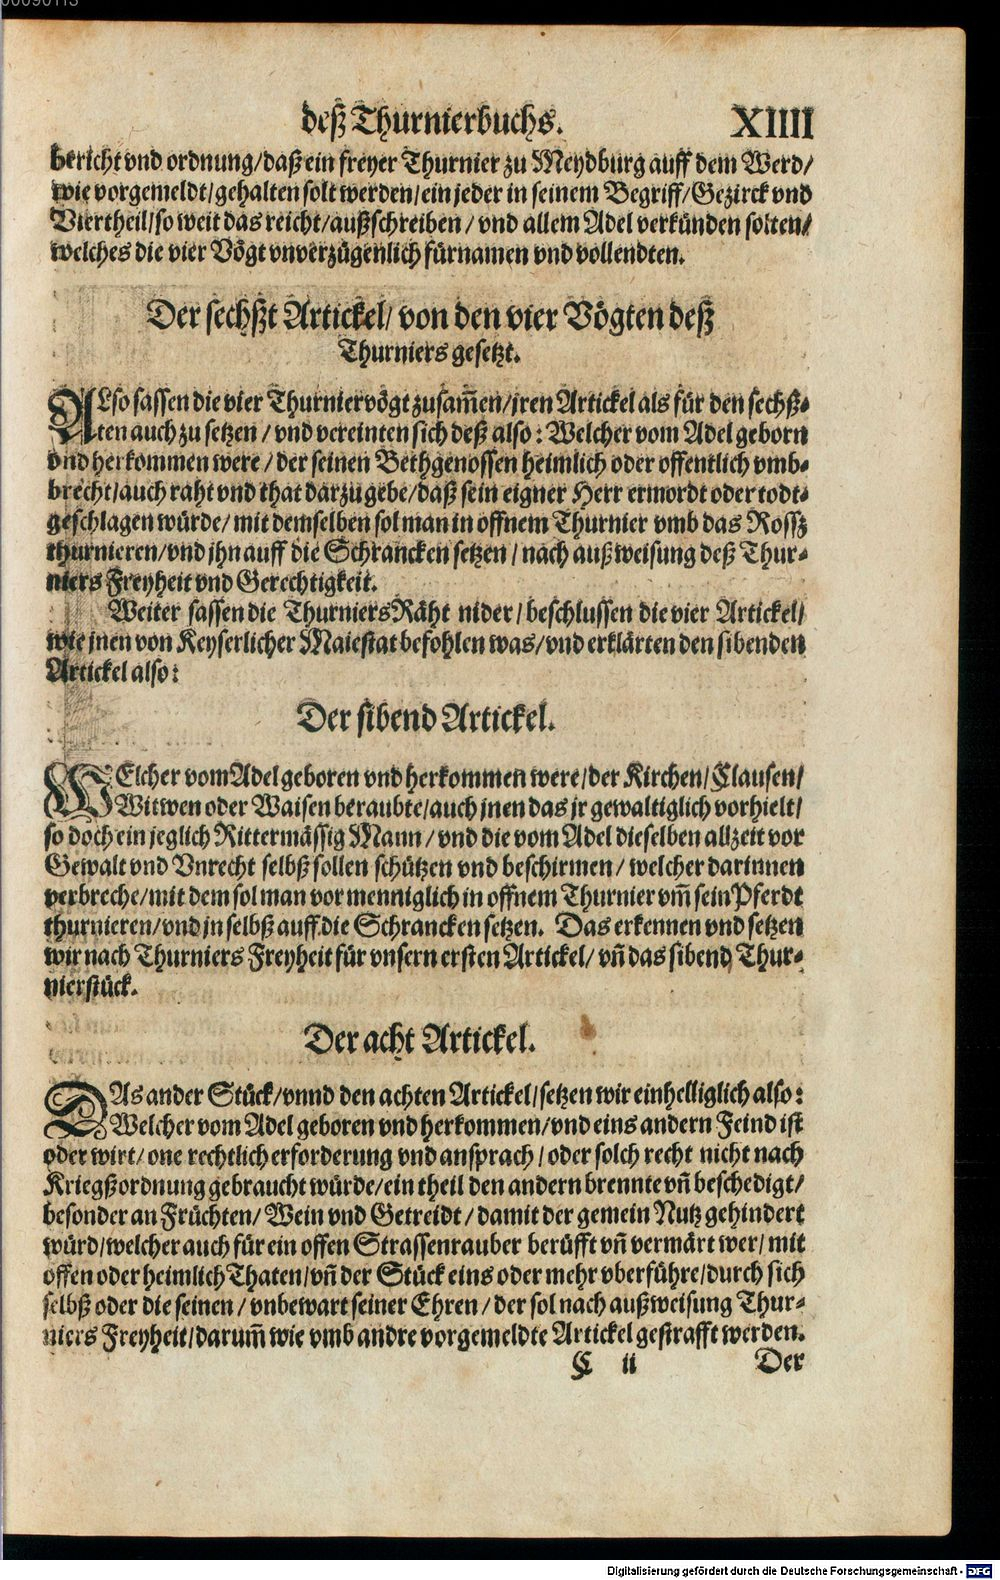 00090113
deß Thurnierbuchs. XIIII
bericht vnd ordnung/daß ein freyer Thurnier zu Meydburg auff dem Werd/
wie vorgemeldt/gehalten solt werden/ein jeder in seinem Begriff/Gezirck vnd
Viertheil/so weit das reicht/außschreiben/vnd allem Adel verkünden solten/
welches die vier Vögt vnverzügenlich fürnamen vnd vollendten.
Der sechßt Artickel/von den vier Vögten deß
Thurniers gesetzt.
ALso sassen die vier Thurniervögt zusam̄en/jren Artickel als für den sechß-
ten auch zu setzen/vnd vereinten sich deß also: Welcher vom Adel geborn
vnd herkommen were/der seinen Bethgenossen heimlich oder offentlich vmb-
brecht/auch raht vnd that darzu gebe/daß sein eigner Herr ermordt oder todt-
geschlagen würde/mit demselben sol man in offnem Thurnier vmb das Rossz
thurnieren/vnd jhn auff die Schrancken setzen/nach außweisung deß Thur-
niers Freyheit vnd Gerechtigkeit.
Weiter sassen die Thurniers Räht nider/beschlussen die vier Artickel/
wie jnen von Keyserlicher Maiestat befohlen was/vnd erklärten den sibenden
Artickel also:
Der sibend Artickel.
WElcher vom Adel geboren vnd herkommen were/der Kirchen/Clausen/
Witwen oder Waisen beraubte/auch jnen das jr gewaltiglich vorhielt/
so doch ein jeglich Rittermässig Mann/vnd die vom Adel dieselben allzeit vor
Gewalt vnd Vnrecht selbß sollen schützen vnd beschirmen/welcher darinnen
verbreche/mit dem sol man vor menniglich in offnem Thurnier vm̄ sein Pferdt
thurnieren/vnd jn selbß auff die Schrancken setzen. Das erkennen vnd setzen
wir nach Thurniers Freyheit für vnsern ersten Artickel/vn̄ das sibend Thur-
nierstück.
Der acht Artickel.
DAs ander Stück/vnnd den achten Artickel/setzen wir einhelliglich also:
Welcher vom Adel geboren vnd herkommen/vnd eins andern Feind ist
oder wirt/one rechtlich erforderung vnd ansprach/oder solch recht nicht nach
Kriegßordnung gebraucht würde/ein theil den andern brennte vn̄ beschedigt/
besonder an Früchten/Wein vnd Getreidt/damit der gemein Nutz gehindert
würd/welcher auch für ein offen Strassenrauber berüfft vn̄ vermärt wer/mit
offen oder heimlich Thaten/vn̄ der Stück eins oder mehr vberführe/durch sich
selbß oder die seinen/vnbewart seiner Ehren/der sol nach außweisung Thur-
niers Freyheit/darum̄ wie vmb andre vorgemeldte Artickel gestrafft werden.
C ii Der
Digitalisierung gefördert durch die Deutsche Forschungsgemeinschaft - DFG